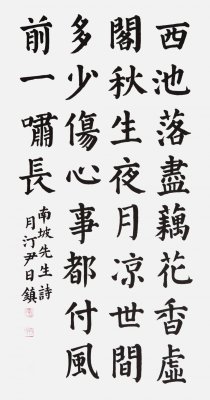 西池落盡藕花香虛
閣秋生夜月凉世間
多少傷心事都付風
前一嘯長
南坡先生詩
月汀尹日鎮